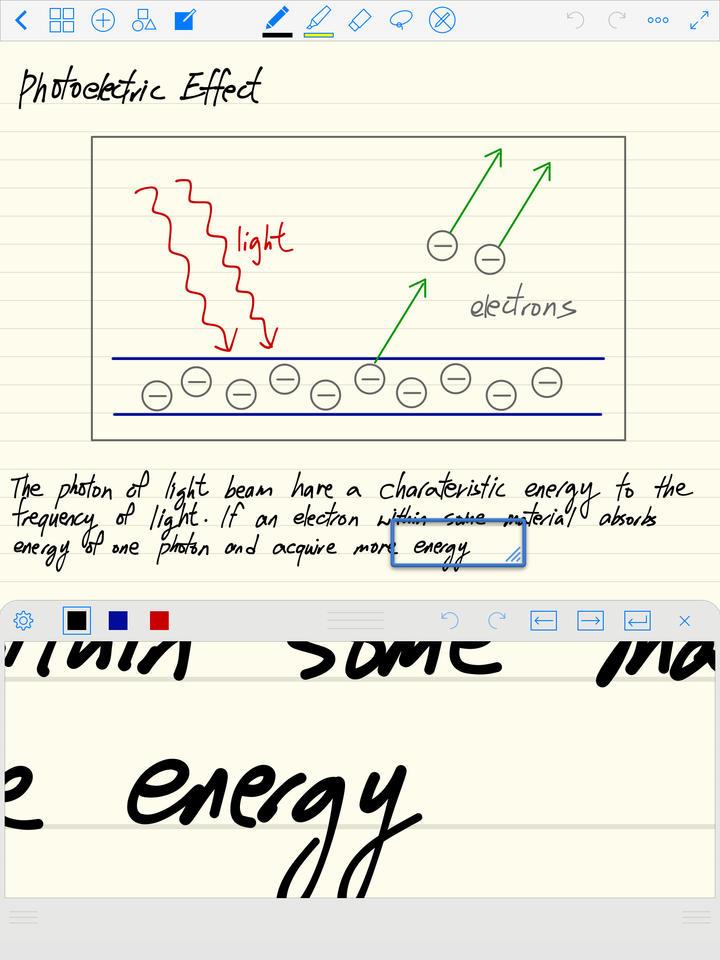 Photoelectric Effect
light
electrons
The photon of light beam have a charateristic energy to the
frequency of light. If an electron within some material absorbs
energy of one photon and acquire more energy
ithin some ma
e energy